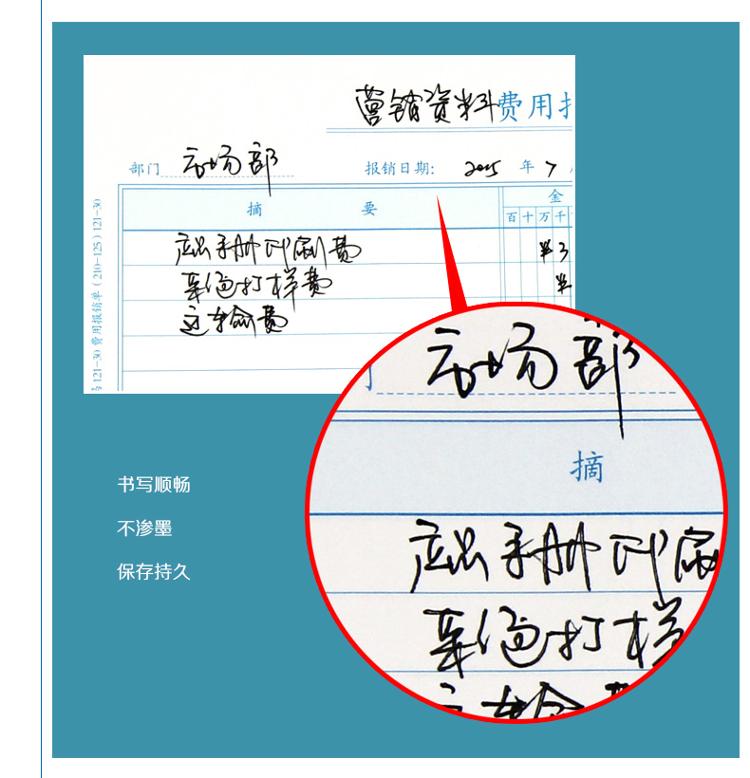 营销资料费用
部门 市场部 报销日期: 2015 年 7
摘 要 金
百 十 万 千
产品手册印刷费 ¥3
打样费 ¥
运输费
121-30 费用报销单(210-125)121-30
市场部
摘
产品手册印刷
打样
书写顺畅
不渗墨
保存持久